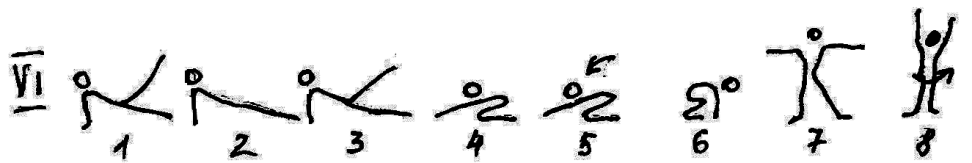 VI
1 2 3 4 5 6 7 8